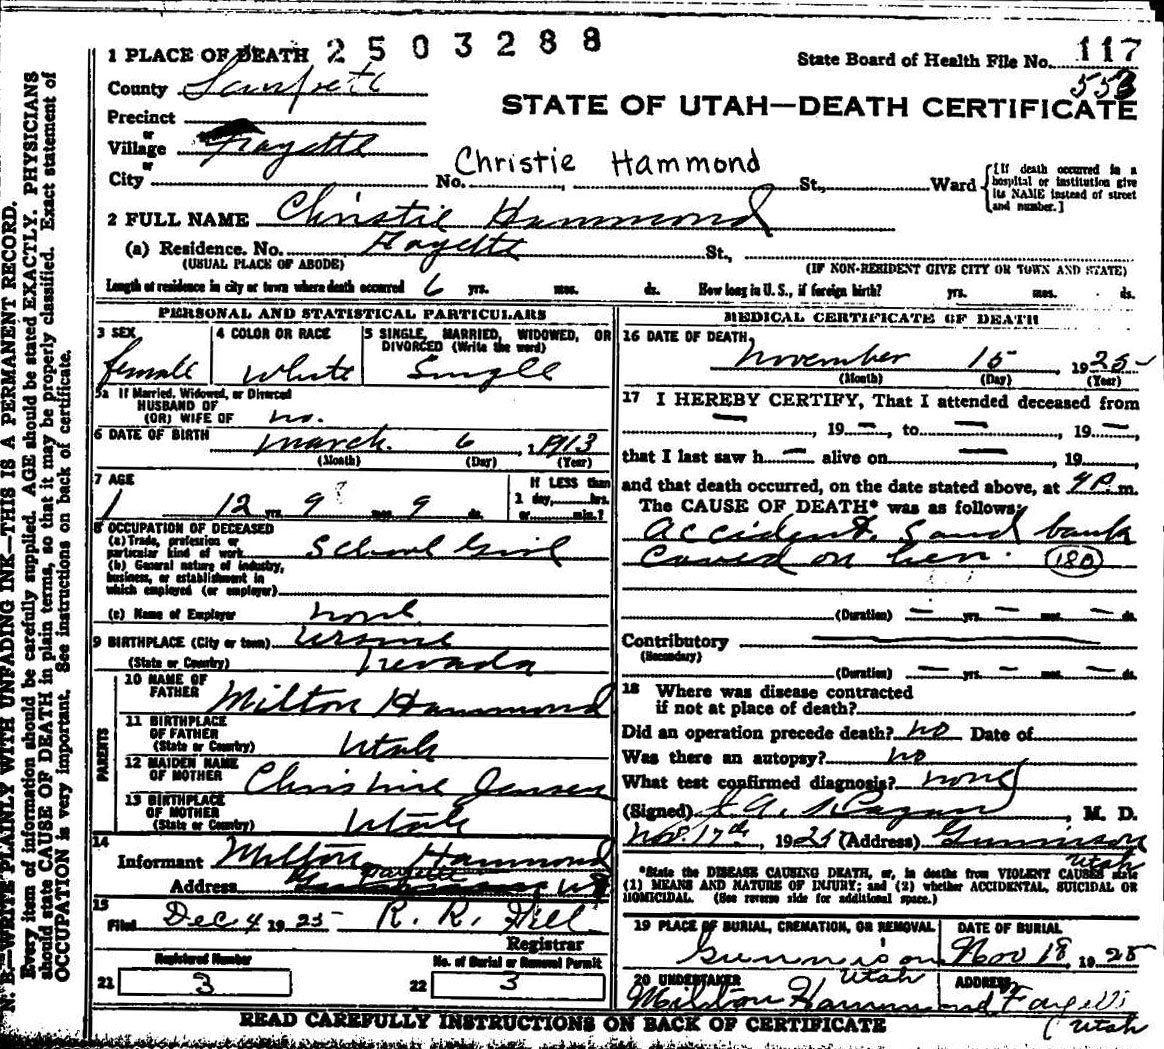 1 PLACE OF DEATH 2503288
State Board of Health File No. 117
553
County Sanpete
STATE OF UTAH—DEATH CERTIFICATE
Precinct
or
Village Fayette
or
Christie Hammond
City No. , St., Ward
[If death occurred in a hospital or institution give its NAME instead of street and number.]
2 FULL NAME Christie Hammond
(a) Residence. No. Fayette St.,
(USUAL PLACE OF ABODE)
(IF NON-RESIDENT GIVE CITY OR TOWN AND STATE)
Length of residence in city or town where death occurred 6 yrs. mos. ds. How long in U. S., if foreign birth? yrs. mos. ds.
PERSONAL AND STATISTICAL PARTICULARS
3 SEX female
4 COLOR OR RACE White
5 SINGLE, MARRIED, WIDOWED, OR DIVORCED (Write the word) Single
5a If Married, Widowed, or Divorced
HUSBAND OF
(OR) WIFE OF no.
6 DATE OF BIRTH march 6, 1913
(Month) (Day) (Year)
7 AGE
12 yrs. 9 mos. 9 ds.
If LESS than 1 day, hrs. or min.?
8 OCCUPATION OF DECEASED
(a) Trade, profession or particular kind of work School Girl
(b) General nature of industry, business, or establishment in which employed (or employer)
(c) Name of Employer none
9 BIRTHPLACE (City or town) Ursine
(State or Country) Nevada
PARENTS
10 NAME OF FATHER Milton Hammond
11 BIRTHPLACE OF FATHER (State or Country) Utah
12 MAIDEN NAME OF MOTHER Christine Jensen
13 BIRTHPLACE OF MOTHER (State or Country) Utah
14
Informant Milton Hammond
Address Fayette
15
Filed Dec 4 1925 R. R. Hill
Registrar
21 Registered Number 3
22 No. of Burial or Removal Permit 3
MEDICAL CERTIFICATE OF DEATH
16 DATE OF DEATH
november 15, 1925
(Month) (Day) (Year)
17 I HEREBY CERTIFY, That I attended deceased from
, 19 —, to — , 19 —,
that I last saw h — alive on — , 19 ,
and that death occurred, on the date stated above, at 4 P. m.
The CAUSE OF DEATH* was as follows:
Accident. Sand bank
Caved on her. 180
(Duration) — yrs. — mos. — ds.
Contributory
(Secondary)
(Duration) — yrs. — mos. — ds.
18 Where was disease contracted
if not at place of death?
Did an operation precede death? no Date of
Was there an autopsy? no
What test confirmed diagnosis? none
(Signed) , M. D.
Nov. 17th, 1925 (Address) Gunnison
Utah
*State the DISEASE CAUSING DEATH, or, in deaths from VIOLENT CAUSES state
(1) MEANS AND NATURE OF INJURY; and (2) whether ACCIDENTAL, SUICIDAL OR
HOMICIDAL. (See reverse side for additional space.)
19 PLACE OF BURIAL, CREMATION, OR REMOVAL
Gunnison Utah
DATE OF BURIAL
Nov 18, 1925
20 UNDERTAKER
Milton Hammond
ADDRESS
Fayette
Utah
READ CAREFULLY INSTRUCTIONS ON BACK OF CERTIFICATE
N. B.—WRITE PLAINLY WITH UNFADING INK—THIS IS A PERMANENT RECORD.
Every item of information should be carefully supplied. AGE should be stated EXACTLY. PHYSICIANS
should state CAUSE OF DEATH in plain terms, so that it may be properly classified. Exact statement of
OCCUPATION is very important. See instructions on back of certificate.